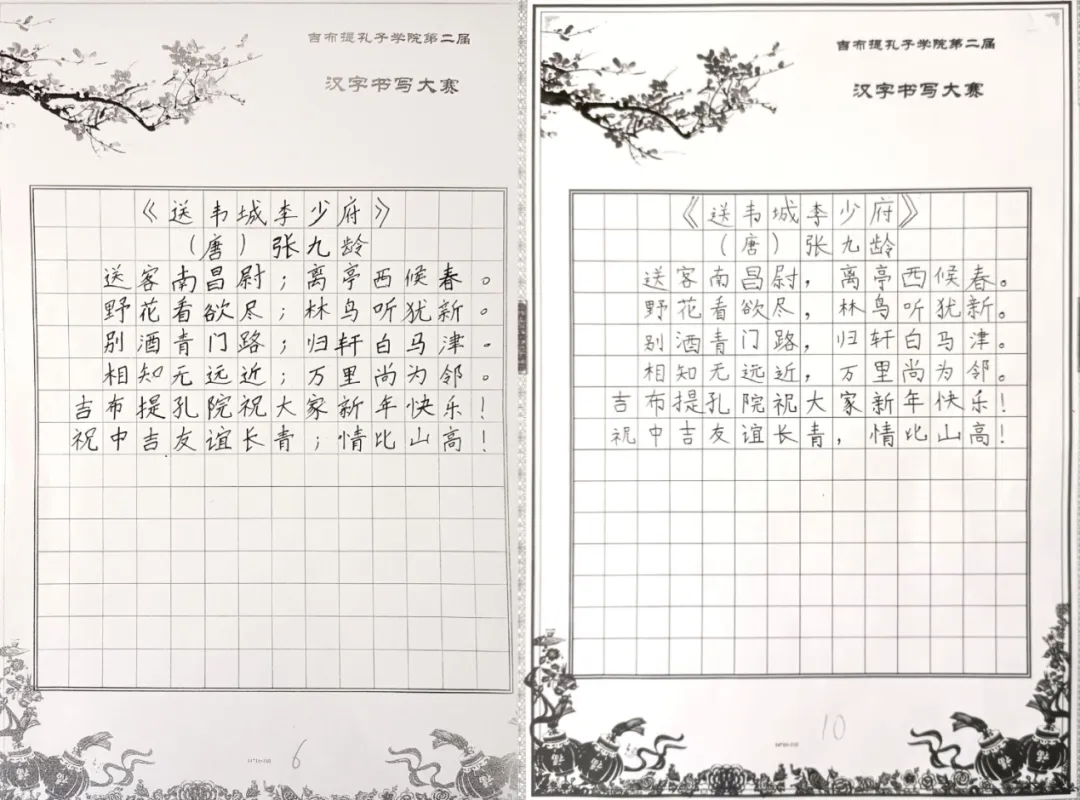 吉布提孔子学院第二届
汉字书写大赛
《送韦城李少府》
（唐）张九龄
送客南昌尉；离亭西候春。
野花看欲尽；林鸟听犹新。
别酒青门路；归轩白马津。
相知无远近；万里尚为邻。
吉布提孔院祝大家新年快乐！
祝中吉友谊长青；情比山高！
6
吉布提孔子学院第二届
汉字书写大赛
《送韦城李少府》
（唐）张九龄
送客南昌尉，离亭西候春。
野花看欲尽，林鸟听犹新。
别酒青门路，归轩白马津。
相知无远近，万里尚为邻。
吉布提孔院祝大家新年快乐！
祝中吉友谊长青，情比山高！
10